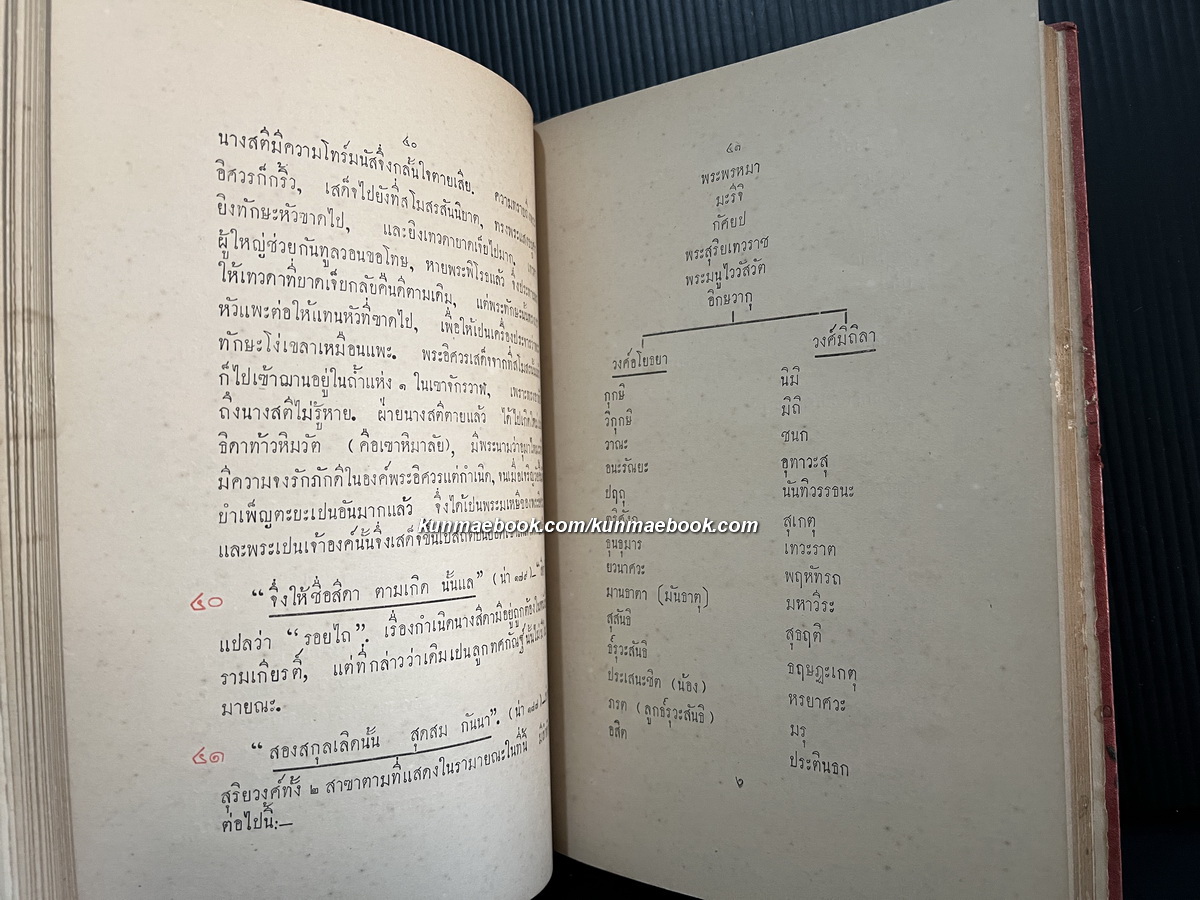 ๔๐
นางสตีมีความโทร์มนัสจึ่งกลั้นใจตายเสีย.
อิศวรก็กริ้ว, เสด็จไปยังที่สโมสรสันนิบาต,
ยิงทักษะหัวขาดไป, และยิงเทวดาบาดเจ็บไปมาก,
ผู้ใหญ่ช่วยกันทูลวอนขอโทษ, หายพระพิโรธแล้ว
ให้เทวดาที่บาดเจ็บกลับคืนดีตามเดิม,
หัวแพะต่อให้แทนหัวที่ขาดไป,
ทักษะโง่เขลาเหมือนแพะ. พระอิศวรเสด็จจากที่สโมสร
ก็ไปเข้าฌานอยู่ในถ้ำแห่ง ๑ ในเขาจักรวาฬ,
ถึงนางสตีไม่รู้หาย. ฝ่ายนางสตีตายแล้ว
ธิดาท้าวหิมวัต (คือเขาหิมาลัย),
มีความจงรักภักดีในองค์พระอิศวรแต่กำเนิด,
บำเพ็ญตะบะเปนอันมากแล้ว จึ่งได้เปนพระมเหษี
และพระเปนเจ้าองค์นั้นจึ่งเสด็จขึ้นไปสถิต
๔๐ “จึ่งให้ชื่อสีดา ตามเกิด นั้นแล” (น่า ๑๗๕)—
แปลว่า “รอยไถ”. เรื่องกำเนิดนางสีดามีอยู่ถูกต้อง
รามเกียรติ์, แต่ที่กล่าวว่าเดิมเปนลูกทศกัณฐ์
มายณะ.
๔๑ “สองสกุลเลิดนั้น สุดสม กันนา”.
สุริยวงศ์ทั้ง ๒ สาขาตามที่แสดงในรามายณะในที่นี้
ต่อไปนี้:—
๔๑
พระพรหมา
มะรีจิ
กัศยป
พระสุริยเทวราช
พระมนูไววัสวัต
อิกษวากุ
วงศ์อโยธยา
กุกษิ
วิกุกษิ
วาณะ
อนะรัณยะ
ปฤถุ
ตริศังกุ
ธุนธุมาร
ยวนาศวะ
มานธาตา (มันธาตุ)
สุสันธิ
ธ์รุวะสันธิ
ประเสนะชิต (น้อง)
ภรต (ลูกธ์รุวะสันธิ)
อสิต
วงศ์มิถิลา
นิมี
มิถิ
ชนก
อุทาวะสุ
นันทิวรรธนะ
สุเกตุ
เทวะราต
พฤหัทรถ
มหาวีระ
สุธฤติ
ธฤษฏะเกตุ
หรยาศวะ
มรุ
ประตินธก
๖
kunmaebook.com/kunmaebook.com